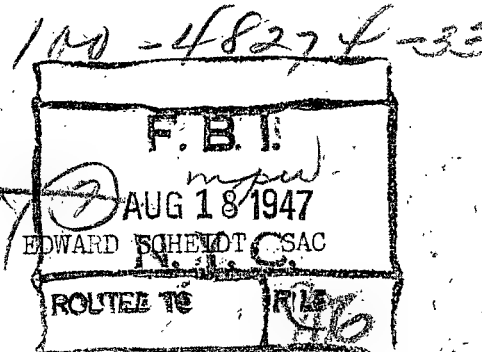 100-48274-33
F. B. I.
AUG 18 1947
EDWARD SCHEIDT SAC
N. Y. C.
ROUTED TO FILE